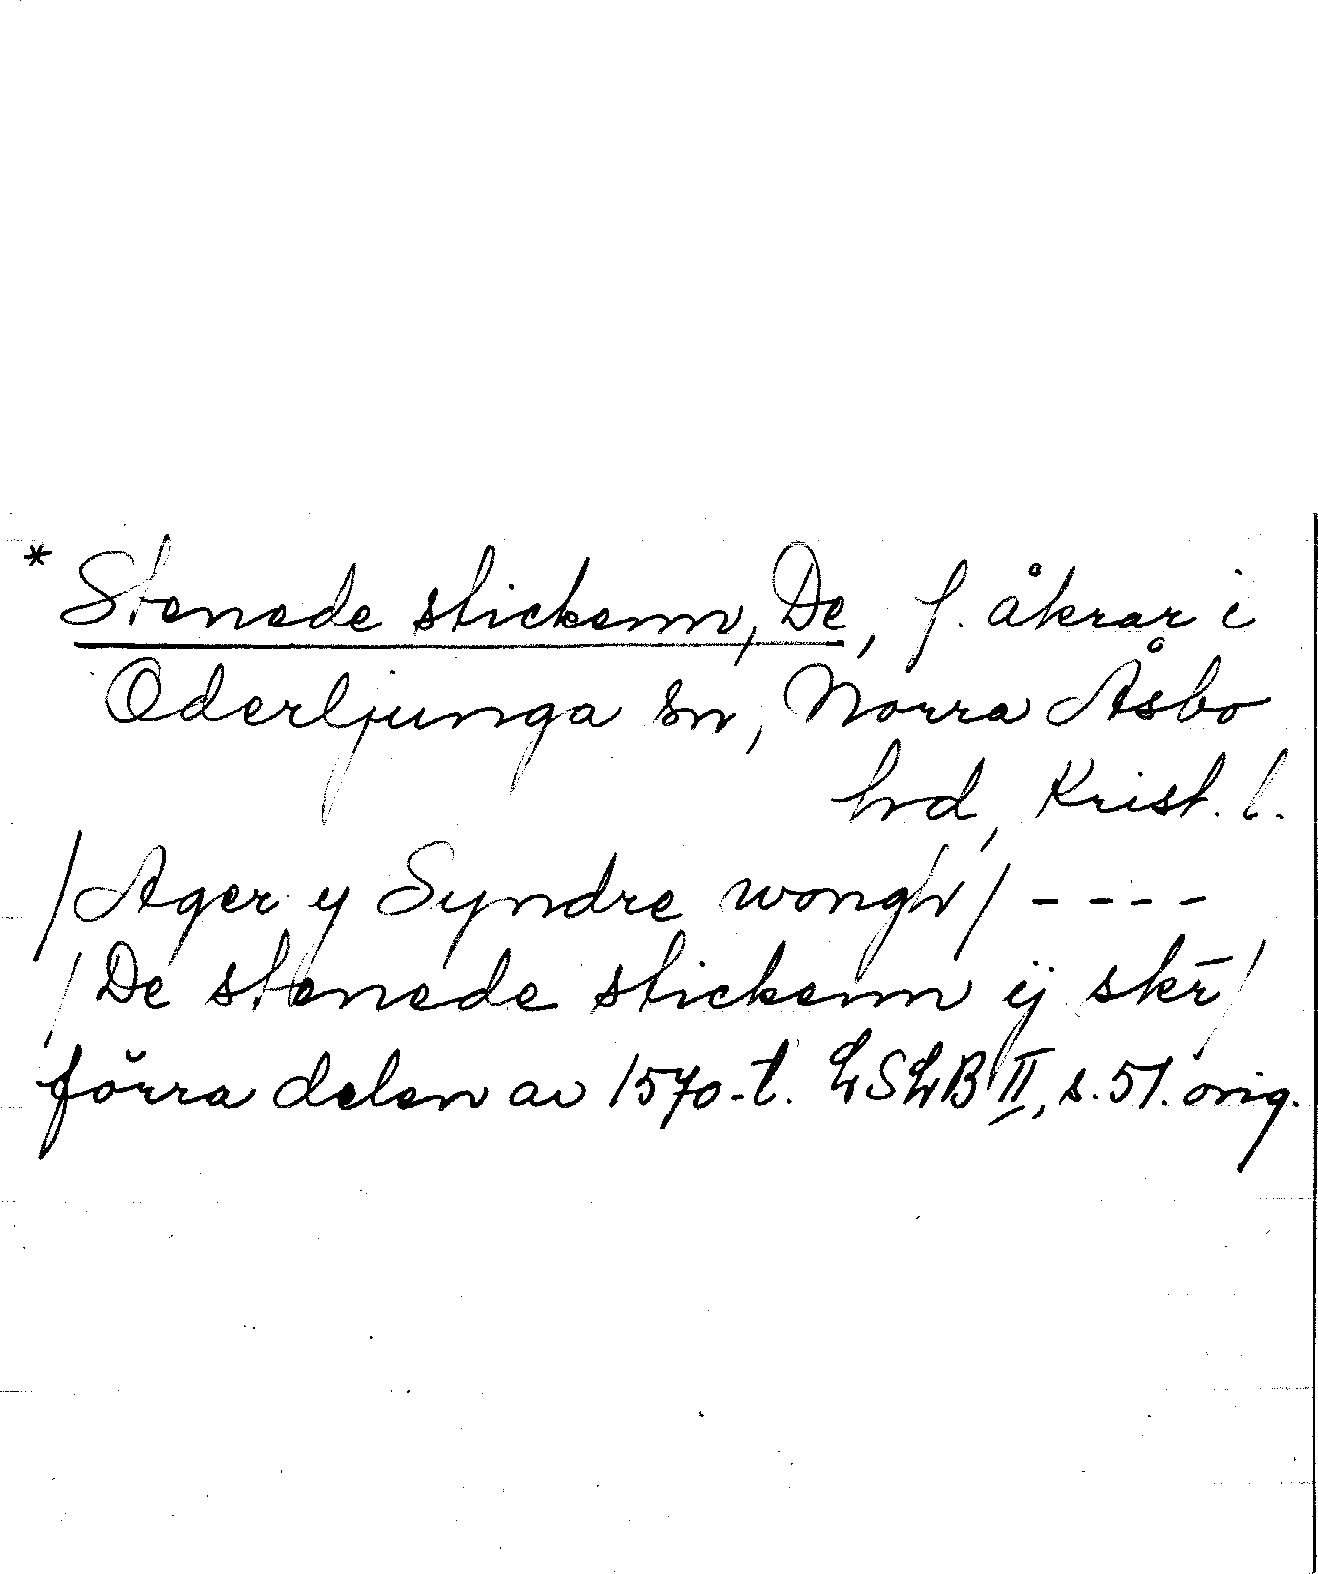 * Stenede stickenn, De, f. åkrar i
Oderljunga sn, Norra Åsbo
hrd, Krist. l.
/Ager y Syndre wongh/ - - - -
/De stenede stickenn ij skr̄/
förra delen av 1570-t. LSLB II, s. 51. orig.